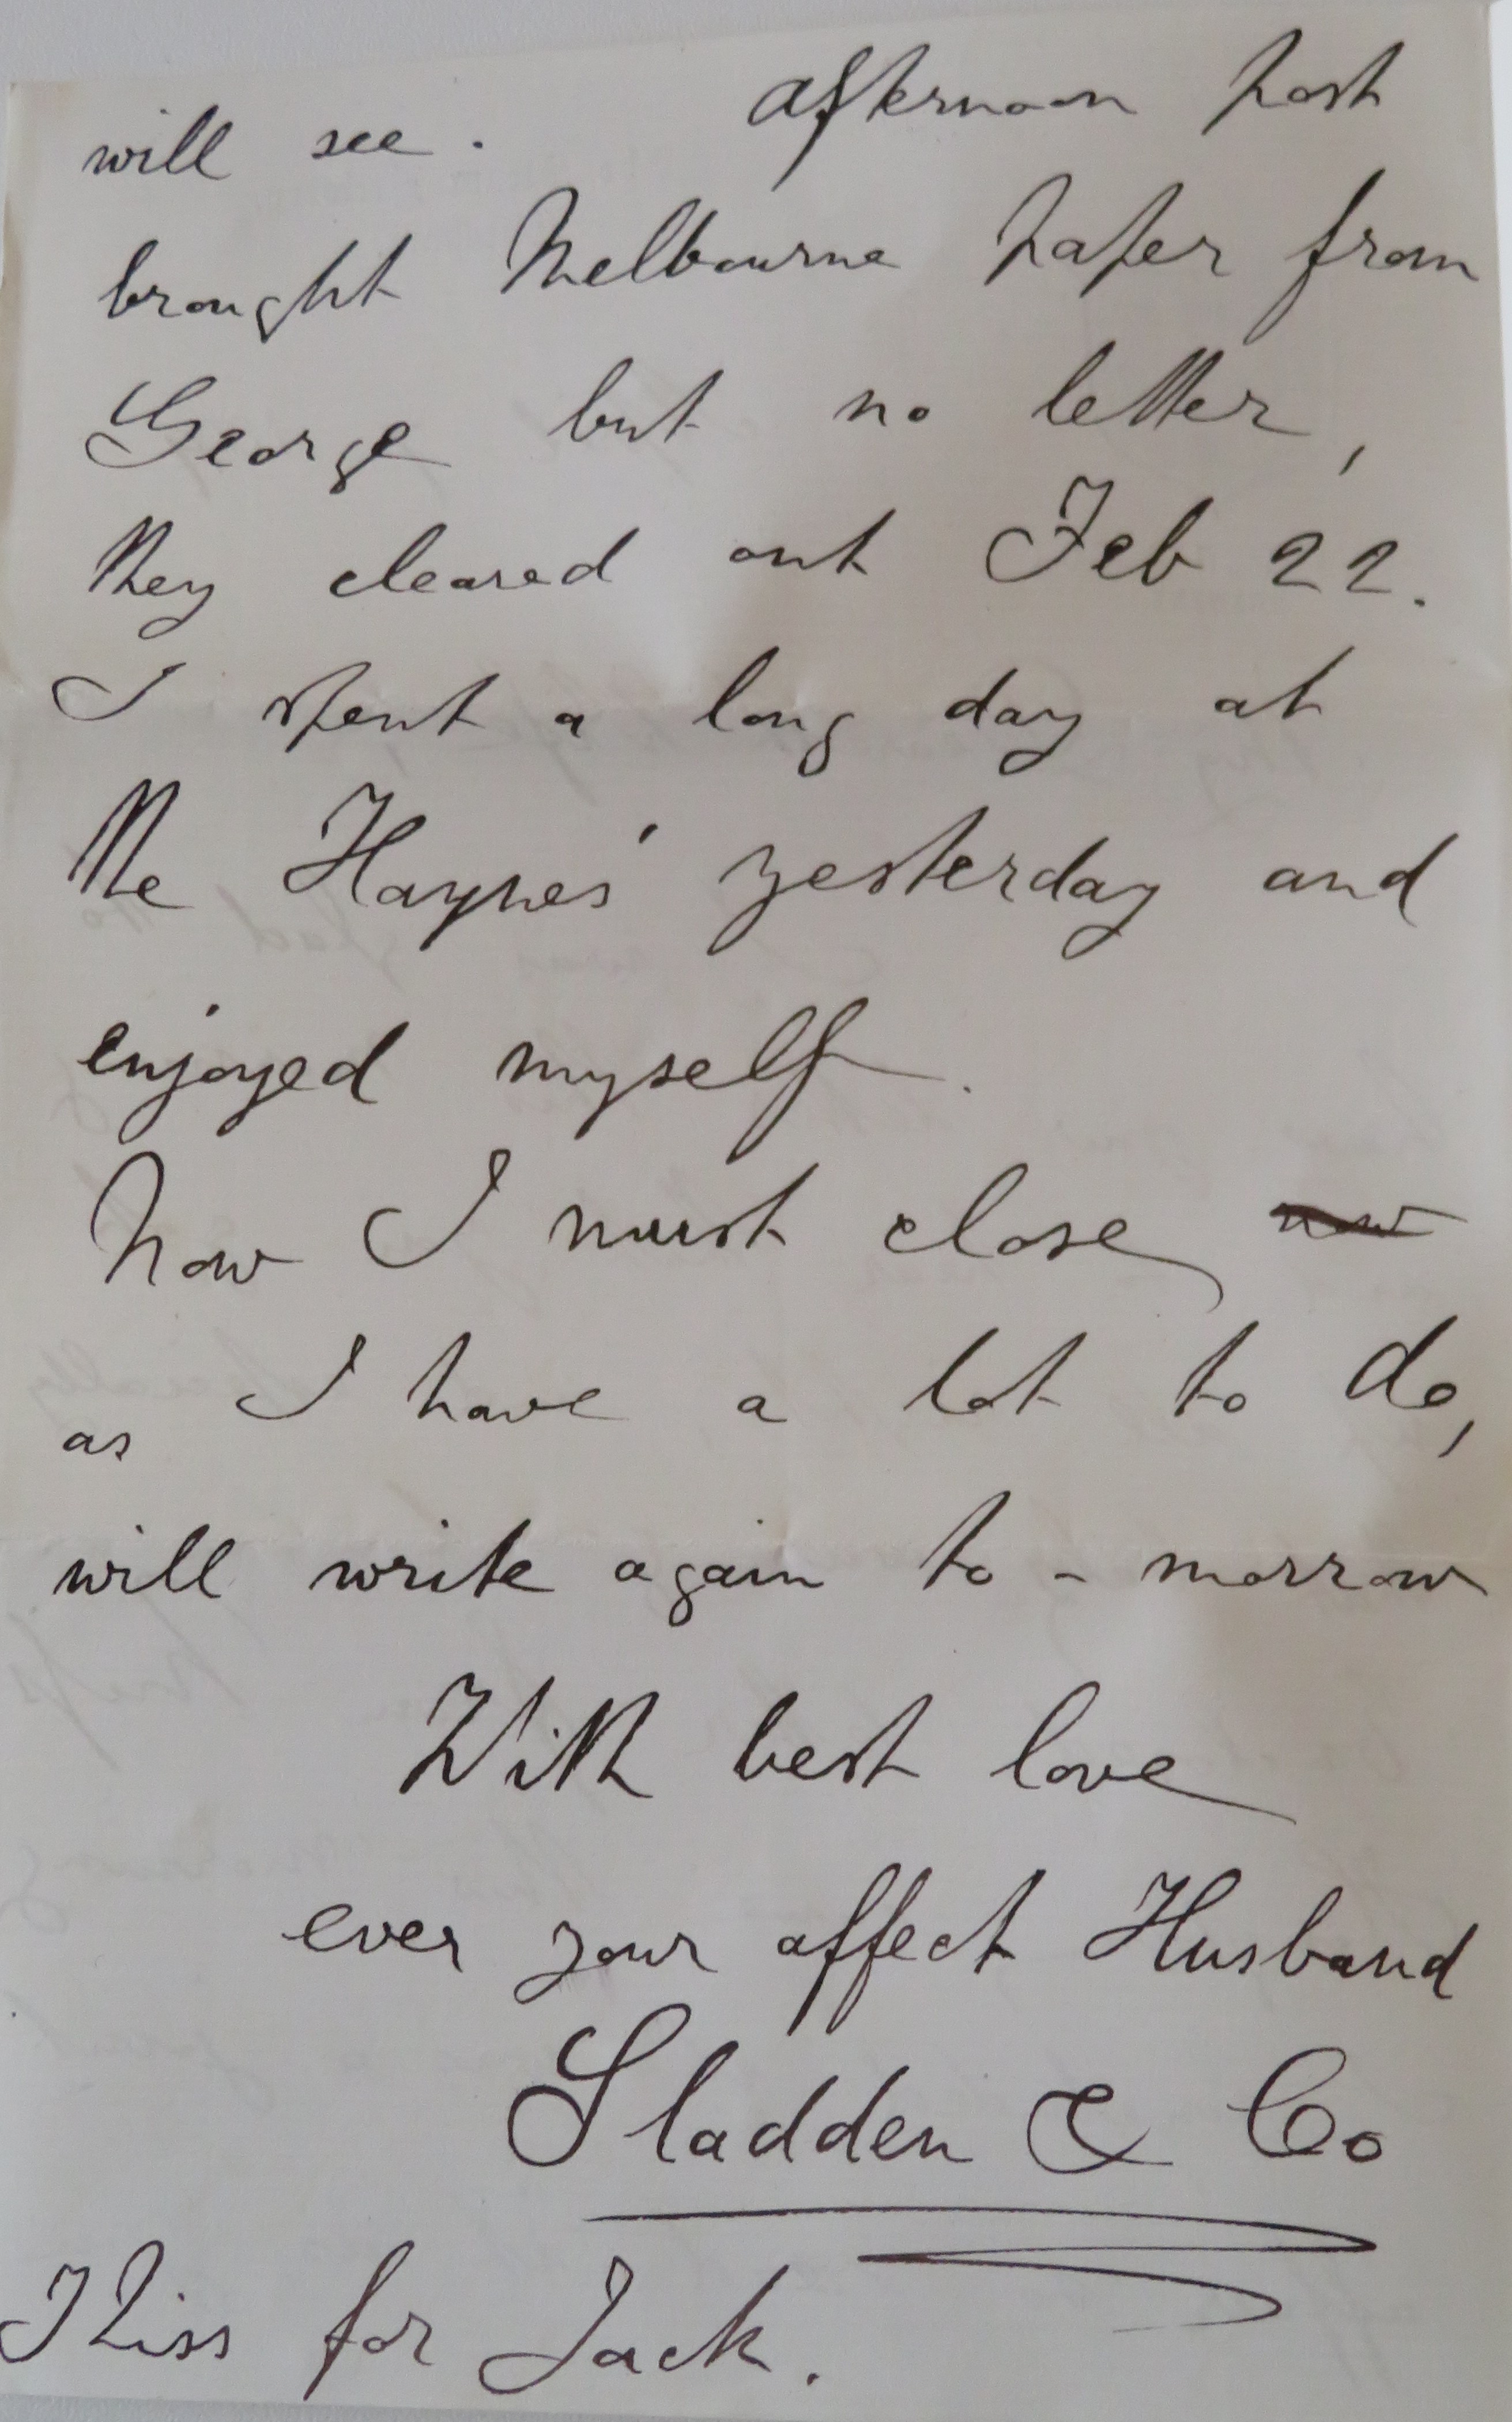 will see. Afternoon post
brought Melbourne paper from
George but no letter,
they cleared out Feb 22.
I spent a long day at
the Haynes' yesterday and
enjoyed myself.
Now I must close now
as I have a lot to do,
will write again to-morrow
With best love
ever your affect Husband
Sladden & Co
Kiss for Jack.